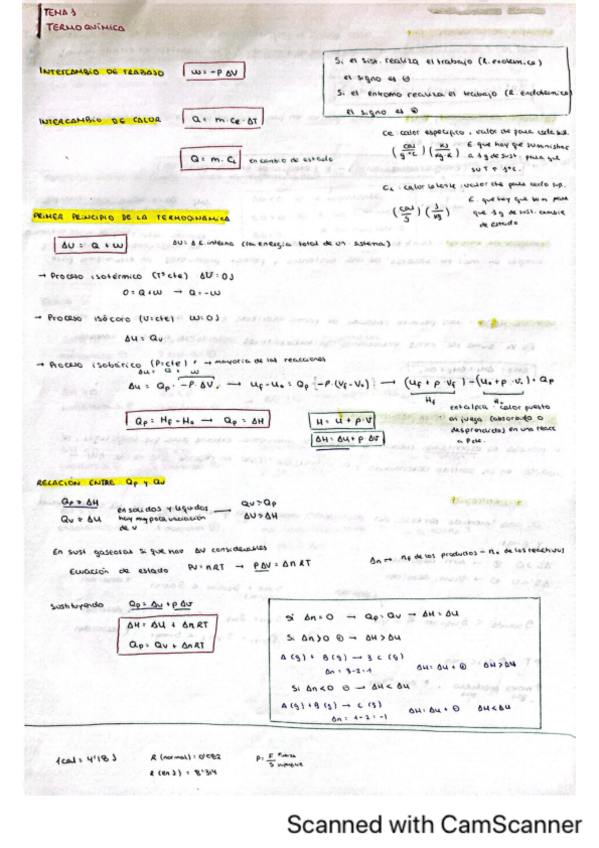 TEMA 3
TERMOQUÍMICA
INTERCAMBIO DE TRABAJO W = -P ΔV
Si el sist. realiza el trabajo (R. exotérmica)
el signo es ⊖
Si el entorno realiza el trabajo (R. endotérmica)
el signo es ⊕
INTERCAMBIO DE CALOR Q = m · Ce · ΔT
Q = m · CL en cambio de estado
Ce: calor específico, valor de para cada sust.
(cal / g·ºC) (KJ / Kg·K) E. que hay que suministrar
a 1g de sust. para que
su T ↑ 1ºC.
CL: calor latente: valor de para cada sup.
(cal / g) (J / Kg) E. que hay que para
que 1g de sust. cambie
de estado
PRIMER PRINCIPIO DE LA TERMODINÁMICA
ΔU = Q + W ΔU = Δ E. interna (la energía total de un sistema)
→ Proceso isotérmico (Tª cte) ΔU = 0J
0 = Q + W → Q = -W
→ Proceso isócoro (V = cte) W = 0J
ΔU = Qv
→ Proceso isobárico (P = cte) → mayoría de las reacciones
ΔU = Q + W
ΔU = Qp · -P · ΔV. → Uf - U₀ = Qp [-P · (Vf - V₀)] → (Uf + P · Vf) - (U₀ + P · V.) = Qp
Hf H₀
Qp = Hf - H₀ → Qp = ΔH
H = U + P · V
ΔH = ΔU + P ΔV
entalpía: calor puesto
en juego (absorbido o
desprendido) en una react
a P cte.
RELACIÓN ENTRE Qp y Qv
Qp = ΔH
Qv = ΔU
en sólidos y líquidos
hay muy poca variación
de V
Qv > Qp
ΔU > ΔH
En sust gaseosas si que hay ΔV considerables
Ecuación de estado PV = nRT → PΔV = ΔnRT
Δn → nf de los productos - n₀ de los reactivos
Sustituyendo Qp = ΔU + P ΔV
ΔH = ΔU + ΔnRT
Qp = Qv + ΔnRT
Si Δn = 0 → Qp = Qv → ΔH = ΔU
Si Δn > 0 ⊕ → ΔH > ΔU
A (g) + B (g) → 3 C (g)
Δn = 3-2 = 1 ΔH = ΔU + ⊕ ΔH > ΔU
Si Δn < 0 ⊖ → ΔH < ΔU
A (g) + B (g) → C (g)
Δn = 1-2 = -1 ΔH = ΔU + ⊖ ΔH < ΔU
1 cal = 4'18 J
R (normal) = 0'082
R (en J) = 8'314
P = F fuerza / S superficie
Scanned with CamScanner